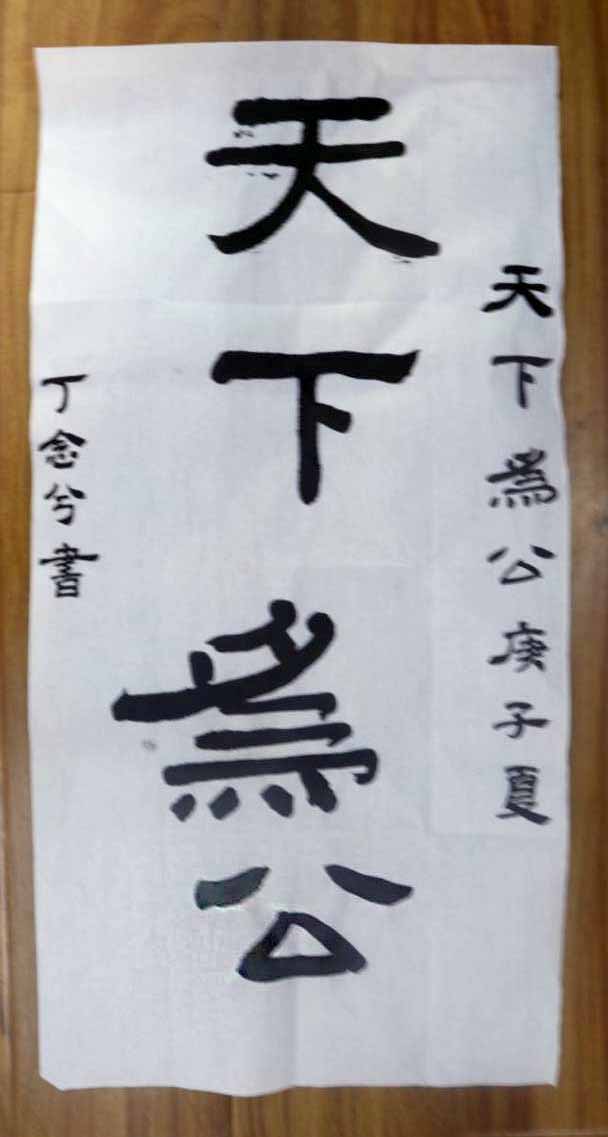 天下為公庚子夏
天下為公
丁念兮書